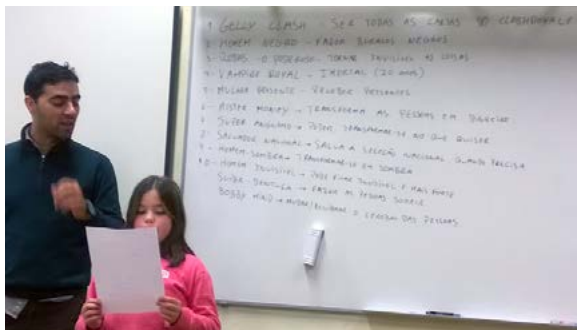 1 - GELLY CLASH - SER TODAS AS CARTAS DO CLASH ROYALE
2 - HOMEM NEGRO - FAZER BURACOS NEGROS
3 - - O PODEROSO - TORNAR INVISÍVEL AS COISAS
4 - VAMPIRO ROYAL - IMORTAL (20 anos)
5 - MULHER PRESENTE - RECEBER PRESENTES
6 - MISTER MONEY → TRANSFORMA AS PESSOAS EM DINHEIRO
SUPER → PODER TRANSFORMAR-SE NO QUE QUISER
SALVADOR NACIONAL → SALVA A SELEÇÃO NACIONAL QUANDO PRECISA
HOMEM-SOMBRA → TRANSFORMAR-SE EM SOMBRA
10 - HOMEM INVISÍVEL → PODE FICAR INVISÍVEL E MAIS FORTE
SUPER - → FAZER AS PESSOAS SORRIR
BOBBY → MUDAR O CÉREBRO DAS PESSOAS